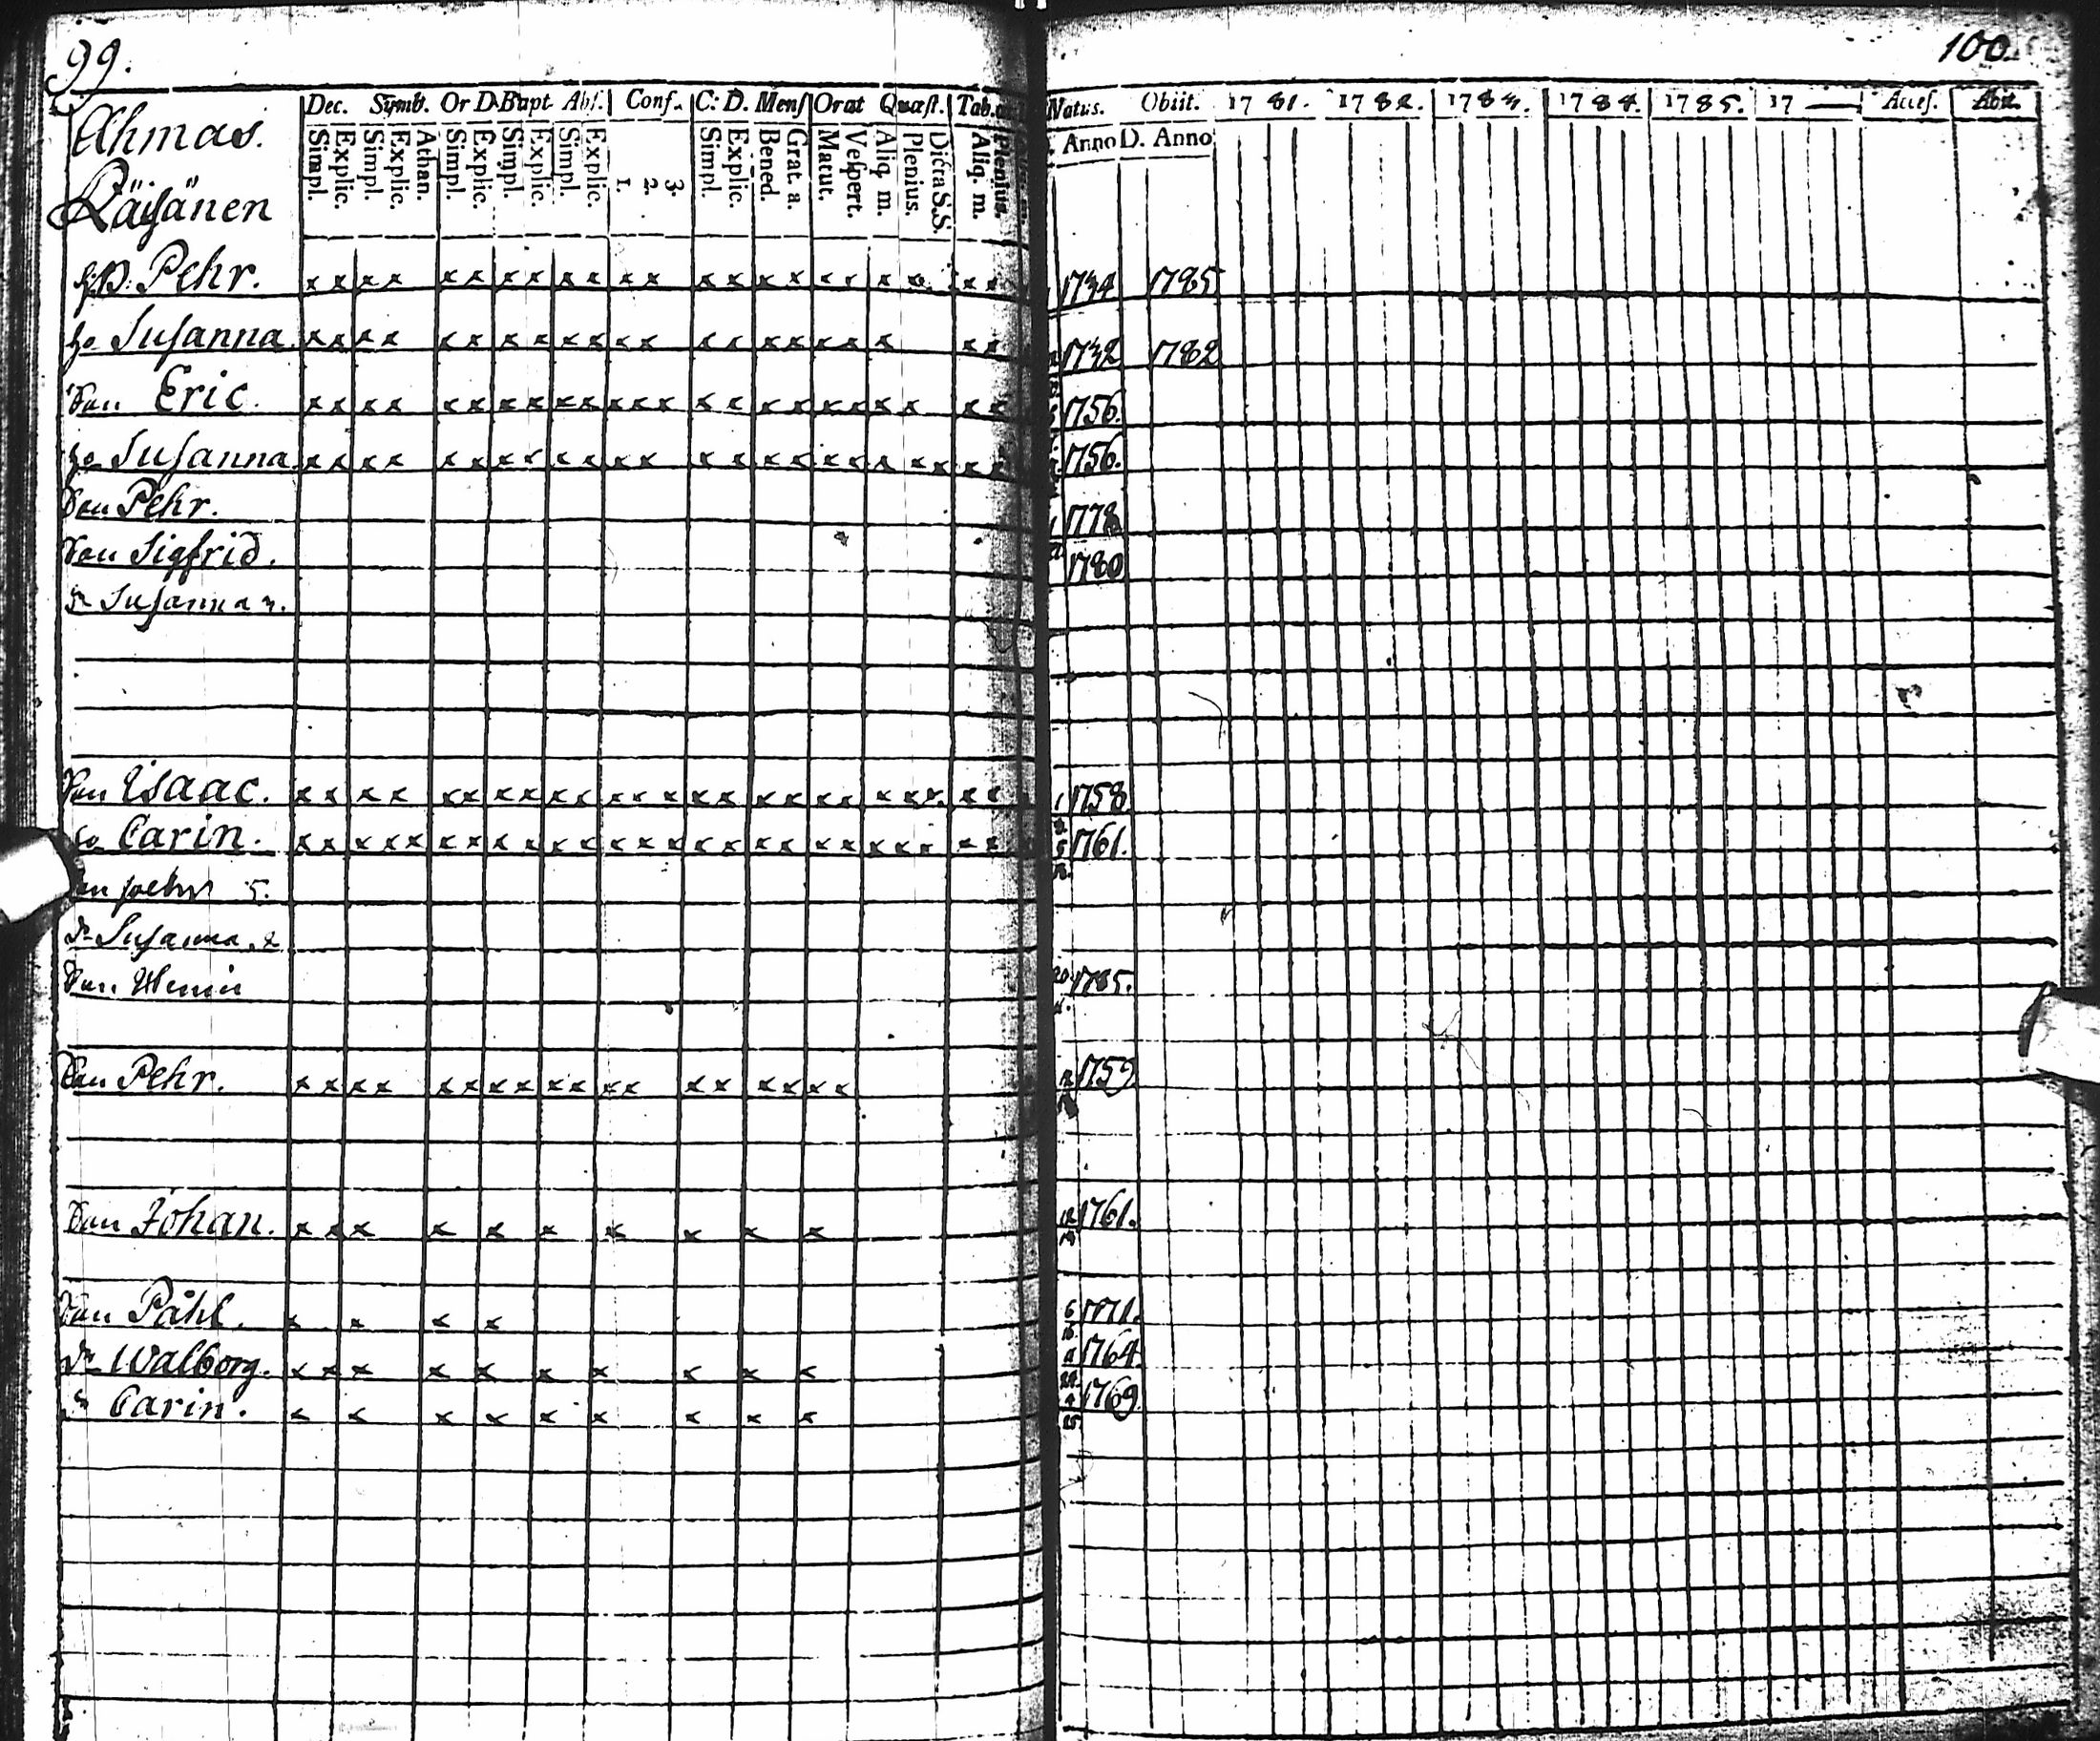 99.
Dec. Symb. Or D. Bapt. Abs. Conf. C: D. Mensſ Orat Quæſt. Tab.
Simpl. Explic. Simpl. Explic. Athan. Simpl. Explic. Simpl. Explic. Simpl. Explic. 1. 2. 3. Simpl. Explic. Bened. Grat. a. Matut. Veſpert. Aliq. m. Plenius. Dicta S.S. Aliq. m. Plenius.
Ahmas.
Räisänen
Pehr. x x x x x x x x x x x x x x x x x x x x x x
ho Suſanna. x x x x x x x x x x x x x x x x x x x x x
Son Eric. x x x x x x x x x x x x x x x x x x x x x x x
ho Suſanna x x x x x x x x x x x x x x x x x x x x x x x
Son Pehr.
Son Sigfrid.
Dr Suſanna
Son Isaac. x x x x x x x x x x x x x x x x x x x x x x x x
ho Carin. x x x x x x x x x x x x x x x x x x x x x x x x x
Son
Dr Suſanna
Son
Son Pehr. x x x x x x x x x x x x x x x x x x
Son Johan. x x x x x x x x x x
Son Påhl. x x x x
Dr Walborg. x x x x x x x x x x
Dr Carin. x x x x x x x x x
100.
Natus. Obiit. 1781. 1782. 1783. 1784. 1785. 17 Acceſ. Abit.
Anno D. Anno
1734 1785
1732 1782
1756.
1756.
1778
1780
1758
1761.
20 1785.
1759
1761.
6 1771.
1764.
1769.